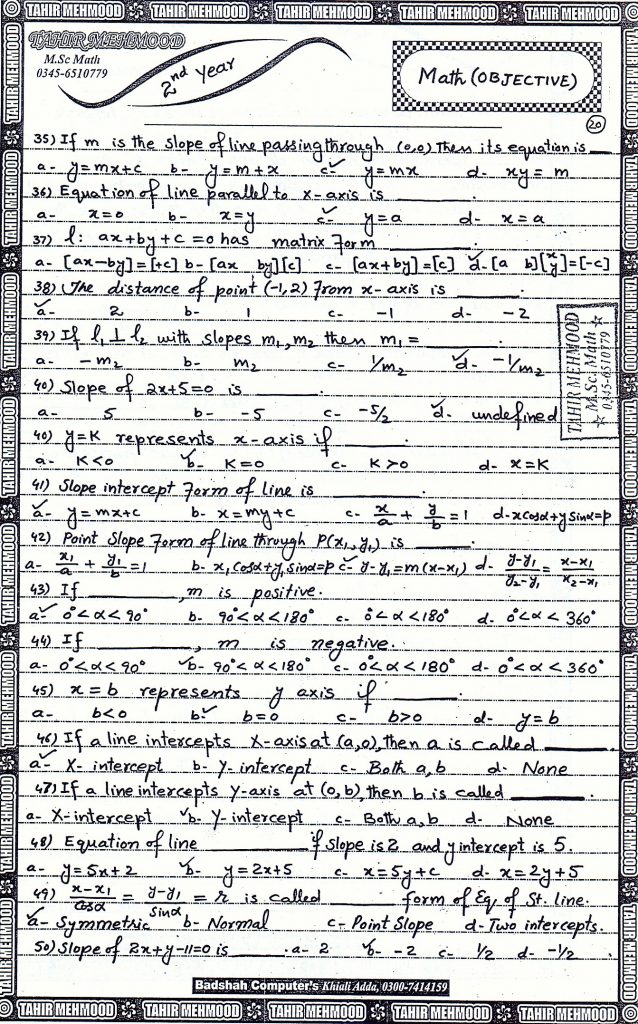 TAHIR MEHMOOD TAHIR MEHMOOD TAHIR MEHMOOD TAHIR MEHMOOD TAHIR MEHMOOD
TAHIR MEHMOOD
M.Sc Math
0345-6510779
2nd Year
Math (OBJECTIVE)
20
35) If m is the slope of line passing through (0,0) Then its equation is ___
a- y=mx+c b- y=m+x c- y=mx d- xy=m
36) Equation of line parallel to x-axis is ______.
a- x=0 b- x=y c- y=a d- x=a
37) l: ax+by+c=0 has matrix Form ______
a- [ax-by]=[+c] b- [ax by][c] c- [ax+by]=[c] d- [a b][x y]=[-c]
38) The distance of point (-1,2) From x-axis is ______.
a- 2 b- 1 c- -1 d- -2
39) If l₁⊥l₂ with slopes m₁,m₂ then m₁= ______.
a- -m₂ b- m₂ c- 1/m₂ d- -1/m₂
40) Slope of 2x+5=0 is ______.
a- 5 b- -5 c- -5/2 d- undefined
40) y=K represents x-axis if ______.
a- K<0 b- K=0 c- K>0 d- x=K
41) Slope intercept Form of line is ______.
a- y=mx+c b- x=my+c c- x/a + y/b =1 d- x cosα+y sinα=P
42) Point Slope Form of line through P(x₁,y₁) is ______.
a- x₁/a + y₁/b =1 b- x₁cosα+y₁sinα=p c- y-y₁=m(x-x₁) d- y-y₁/y₂-y₁ = x-x₁/x₂-x₁
43) If ______,m is positive.
a- 0°<α<90° b- 90°<α<180° c- 0°<α<180° d- 0°<α<360°
44) If ______, m is negative.
a- 0°<α<90° b- 90°<α<180° c- 0°<α<180° d- 0°<α<360°
45) x=b represents y axis if ______.
a- b<0 b- b=0 c- b>0 d- y=b
46) If a line intercepts X-axis at (a,0), then a is called ______
a- X-intercept b- Y-intercept c- Both a,b d- None
47) If a line intercepts Y-axis at (0,b), then b is called ______
a- X-intercept b- Y-intercept c- Both a,b d- None
48) Equation of line ______ if slope is 2 and y intercept is 5.
a- y=5x+2 b- y=2x+5 c- x=5y+c d- x=2y+5
49) x-x₁/cosα = y-y₁/sinα = r is called ______ form of Eq. of St. line.
a- Symmetric b- Normal c- Point Slope d- Two intercepts.
50) Slope of 2x+y-11=0 is ____. a- 2 b- -2 c- 1/2 d- -1/2
TAHIR MEHMOOD
M.Sc Math
0345-6510779
Badshah Computer's Khiali Adda, 0300-7414159
TAHIR MEHMOOD TAHIR MEHMOOD TAHIR MEHMOOD TAHIR MEHMOOD TAHIR MEHMOOD